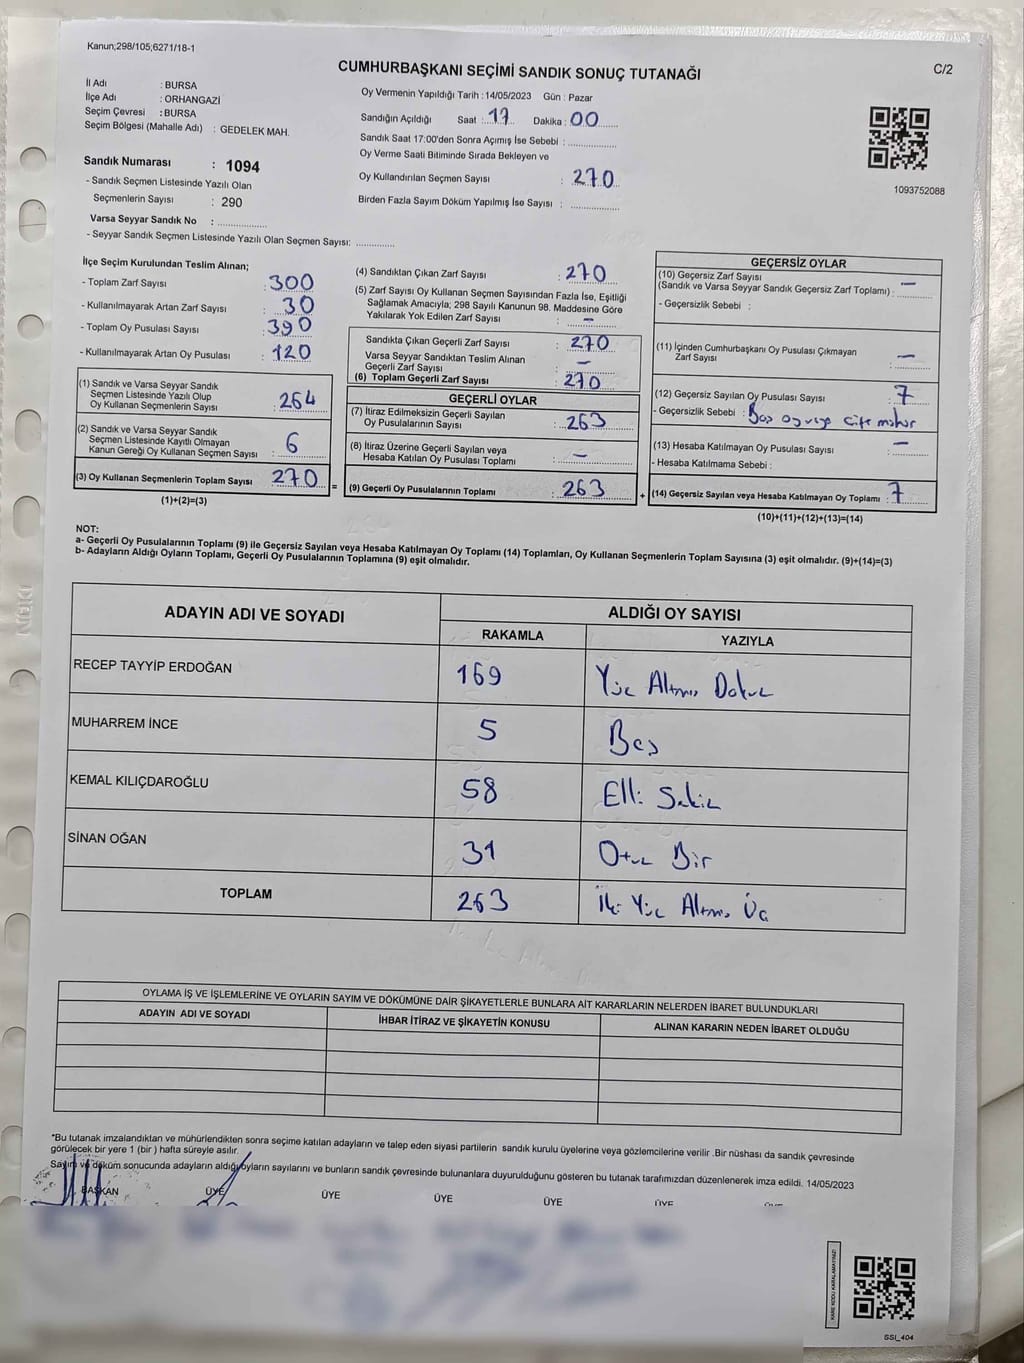 Kanun;298/105;6271/18-1
C/2
CUMHURBAŞKANI SEÇİMİ SANDIK SONUÇ TUTANAĞI
İl Adı : BURSA
İlçe Adı : ORHANGAZİ
Seçim Çevresi : BURSA
Seçim Bölgesi (Mahalle Adı) : GEDELEK MAH.
Sandık Numarası : 1094
- Sandık Seçmen Listesinde Yazılı Olan
Seçmenlerin Sayısı : 290
Varsa Seyyar Sandık No : ..................
- Seyyar Sandık Seçmen Listesinde Yazılı Olan Seçmen Sayısı: ..............
Oy Vermenin Yapıldığı Tarih : 14/05/2023 Gün : Pazar
Sandığın Açıldığı Saat : 17 Dakika : 00
Sandık Saat 17:00'den Sonra Açımış İse Sebebi : ..................
Oy Verme Saati Bitiminde Sırada Bekleyen ve
Oy Kullandırılan Seçmen Sayısı : 270
Birden Fazla Sayım Döküm Yapılmış İse Sayısı : ..................
1093752088
İlçe Seçim Kurulundan Teslim Alınan;
- Toplam Zarf Sayısı : 300
- Kullanılmayarak Artan Zarf Sayısı : 30
- Toplam Oy Pusulası Sayısı : 390
- Kullanılmayarak Artan Oy Pusulası : 120
(1) Sandık ve Varsa Seyyar Sandık
Seçmen Listesinde Yazılı Olup
Oy Kullanan Seçmenlerin Sayısı : 264
(2) Sandık ve Varsa Seyyar Sandık
Seçmen Listesinde Kayıtlı Olmayan
Kanun Gereği Oy Kullanan Seçmen Sayısı : 6
(3) Oy Kullanan Seçmenlerin Toplam Sayısı 270
(1)+(2)=(3)
(4) Sandıktan Çıkan Zarf Sayısı : 270
(5) Zarf Sayısı Oy Kullanan Seçmen Sayısından Fazla İse, Eşitliği
Sağlamak Amacıyla; 298 Sayılı Kanunun 98. Maddesine Göre
Yakılarak Yok Edilen Zarf Sayısı : –
Sandıkta Çıkan Geçerli Zarf Sayısı : 270
Varsa Seyyar Sandıktan Teslim Alınan
Geçerli Zarf Sayısı : –
(6) Toplam Geçerli Zarf Sayısı : 270
GEÇERLİ OYLAR
(7) İtiraz Edilmeksizin Geçerli Sayılan
Oy Pusulalarının Sayısı : 263
(8) İtiraz Üzerine Geçerli Sayılan veya
Hesaba Katılan Oy Pusulası Toplamı : –
= (9) Geçerli Oy Pusulalarının Toplamı : 263
GEÇERSİZ OYLAR
(10) Geçersiz Zarf Sayısı
(Sandık ve Varsa Seyyar Sandık Geçersiz Zarf Toplamı) : –
- Geçersizlik Sebebi :
(11) İçinden Cumhurbaşkanı Oy Pusulası Çıkmayan
Zarf Sayısı –
(12) Geçersiz Sayılan Oy Pusulası Sayısı : 7
- Geçersizlik Sebebi : Boş oy veya çift mühür
(13) Hesaba Katılmayan Oy Pusulası Sayısı : –
- Hesaba Katılmama Sebebi :
+ (14) Geçersiz Sayılan veya Hesaba Katılmayan Oy Toplamı : 7
(10)+(11)+(12)+(13)=(14)
NOT:
a- Geçerli Oy Pusulalarının Toplamı (9) ile Geçersiz Sayılan veya Hesaba Katılmayan Oy Toplamı (14) Toplamları, Oy Kullanan Seçmenlerin Toplam Sayısına (3) eşit olmalıdır. (9)+(14)=(3)
b- Adayların Aldığı Oyların Toplamı, Geçerli Oy Pusulalarının Toplamına (9) eşit olmalıdır.
ADAYIN ADI VE SOYADI ALDIĞI OY SAYISI
RAKAMLA YAZIYLA
RECEP TAYYİP ERDOĞAN 169 Yüz Altmış Dokuz
MUHARREM İNCE 5 Beş
KEMAL KILIÇDAROĞLU 58 Elli Sekiz
SİNAN OĞAN 31 Otuz Bir
TOPLAM 263 İki Yüz Altmış Üç
OYLAMA İŞ VE İŞLEMLERİNE VE OYLARIN SAYIM VE DÖKÜMÜNE DAİR ŞİKAYETLERLE BUNLARA AİT KARARLARIN NELERDEN İBARET BULUNDUKLARI
ADAYIN ADI VE SOYADI İHBAR İTİRAZ VE ŞİKAYETİN KONUSU ALINAN KARARIN NEDEN İBARET OLDUĞU
*Bu tutanak imzalandıktan ve mühürlendikten sonra seçime katılan adayların ve talep eden siyasi partilerin sandık kurulu üyelerine veya gözlemcilerine verilir .Bir nüshası da sandık çevresinde
görülecek bir yere 1 (bir ) hafta süreyle asılır.
Sayım ve döküm sonucunda adayların aldığı oyların sayılarını ve bunların sandık çevresinde bulunanlara duyurulduğunu gösteren bu tutanak tarafımızdan düzenlenerek imza edildi. 14/05/2023
BAŞKAN ÜYE ÜYE ÜYE ÜYE ÜYE
KARE KODU KARALAMAYINIZ!
SSI_404